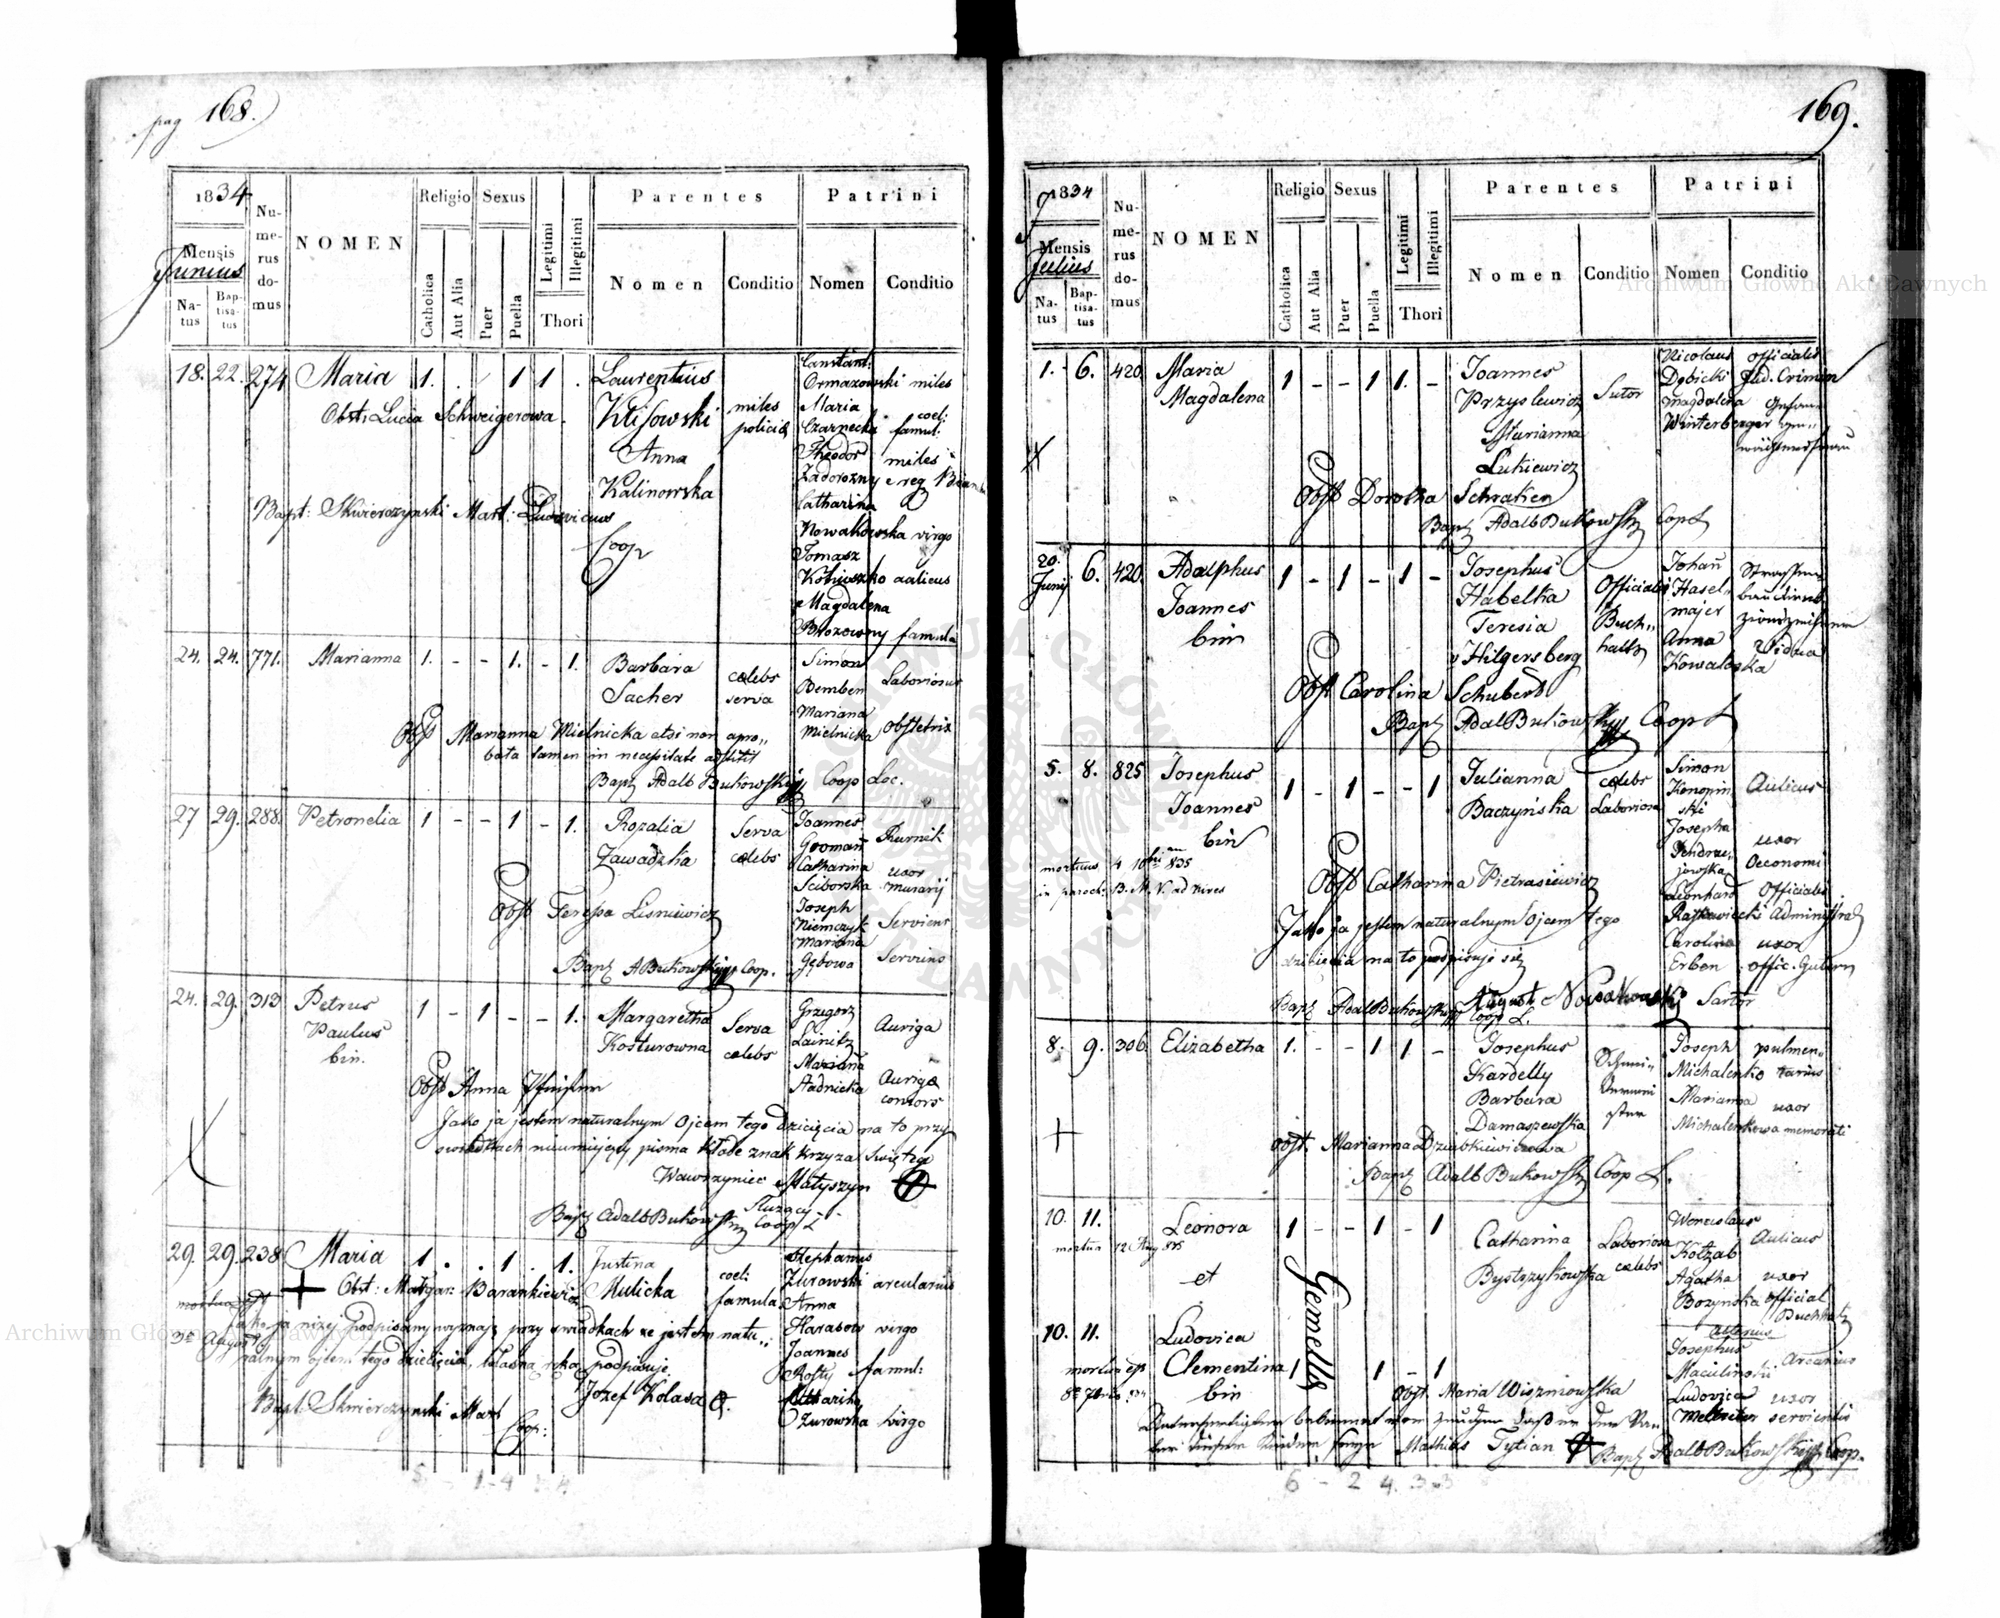 pag 168.
1834
Mensis
Junius
Natus
Baptisatus
Numerus domus
NOMEN
Religio
Catholica
Aut Alia
Sexus
Puer
Puella
Legitimi
Illegitimi
Thori
Parentes
Nomen
Conditio
Patrini
Nomen
Conditio
18. 22. 274 Maria 1. . 1 1 .
Obst: Lucia Schweigerowa.
Laurentius
Klisowski
Anna
Kalinowska
miles
policiæ
Constant:
Ormazowski miles
Maria coel:
Czarnecka famul:
Theodor miles
Zadorozny e reg
Catharina
Nowakowska virgo
Tomasz
Kotiuszko aulicus
Magdalena
Brozowny famula
Bapt: Skwierczynski Mart: Ludovicus
Coop
24. 24. 771. Marianna 1. - - 1. - 1.
Barbara
Sacher
cælebs
serva
Simon
Bemben Laboriosus
Mariana
Mielnicka Obstetrix
Obst Marianna Mielnicka etsi non apro„
bata tamen in necessitate adstitit
Bapt Adalb Bukowski Coop Loc.
27 29. 288. Petronella 1 - - 1 - 1.
Rozalia
Zawadzka
Serva
cælebs
Joannes
Groman
Catharina uxor
Sciborska murarij
Joseph
Niemczyk Serviens
Mariana
Gębowa Serviens
Obst Teressa Lisniewicz
Bapt A Bukowski Coop.
24. 29. 313 Petrus
Paulus
bin.
1 - 1 - - 1.
Margaretha
Kosturowna
Serva
cælebs
Grzegorz
Lainitz Auriga
Mariana
Stadnicka Aurigæ
consors
Obst Anna
Jako ja jestem naturalnym Ojcem tego dziecięcia na to przy
swiadkach nieumiejący pisma kłade znak krzyza Swiętego
Wawrzyniec Matyszyn
Służący
Bapt Adalb Bukowski Coop L
29. 29. 238 Maria 1. . . 1. . 1.
Obst: Małgar: Barankiewicz
Justina
Mulicka
coel:
famula
Stephanus
Zurawski arcularius
Anna
Harasow virgo
Joannes
Rosty famul:
Zurowska virgo
Jako ja niżej podpisany wyznaję przy swiadkach ze jestem natu..
ralnym ojcem tego dziecięcia, własną ręką podpisuję
Jozef Kolasa
Bapt: Skwierczynski Mart
Coop:
5. - 1 - 4 1. 4
169.
1834
Mensis
Julius
Natus
Baptisatus
Numerus domus
NOMEN
Religio
Catholica
Aut Alia
Sexus
Puer
Puella
Legitimi
Illegitimi
Thori
Parentes
Nomen
Conditio
Patrini
Nomen
Conditio
1. 6. 420 Maria
Magdalena
1 - - 1 1. -
Joannes
Przyslewicz
Marianna
Lukiewicz
Sutor
Nicolaus officialis
Dębicki Jud. Crimin
Magdalena
Winterberger
Obst Dorothea Schraken
Bapt Adalb Bukowski Coop L
20.
Junij 6. 420. Adolphus
Joannes
bin
1 - 1 - 1 -
Josephus
Habelka
Teresia
v Hilgersberg
Officialis
Buch„
haltz
Johan
Hasel„
majer
Anna Vidua
Kowalska
Obst Carolina Schubert
Bapt Adal Bukowski Coop L
5. 8. 825 Josephus
Joannes
bin
1 - 1 - - 1
Julianna
Baczyńska
cælebs
Laboriosa
Simon
Konopin Aulicus
ski
Josepha uxor
Jendrze„ Oeconomi
jowska
Leonhard Officialis
Carolina uxor
Erben offic. Gubern
mortuus 4 10bris 835
in paroch: B. M. V. ad Nives
Obst Catharina Pietrasiewicz
Jako ja jestem naturalnym Ojcem tego
dziecięcia na to podpisuję się
August Nowakowski Sartor
Bapt Adal Bukowski Coop L.
8. 9. 306 Elizabetha 1. - - 1 1 -
Josephus
Kardelly
Barbara
Damaszewska
Joseph pulmen„
Michalenko tarius
Marianna uxor
Michalenkowa memorati
Obst. Marianna Dziubkiewiczowa
Bapt Adalb Bukowski Coop L.
10. 11. Leonora 1 - - 1 - 1
mortua 12 Aug 835
et
Gemellæ
Catharina
Bystrzykowska
Laboriosa
cælebs
Wenceslaus
Kotzab Aulicus
Agatha uxor
Bozynska official
Buchhalt
10. 11. Ludovica
Clementina
bin
1 1 - 1
alterius
Josephus
Ludovica uxor
servientis
Obst. Maria Wiszniowska
Mathias Tytian
Bapt Adalb Bukowski Coop.
6 - 2 4. 3 3
Archiwum Główne Akt Dawnych
Archiwum Główne Akt Dawnych
ARCHIWUM GŁÓWNE AKT DAWNYCH